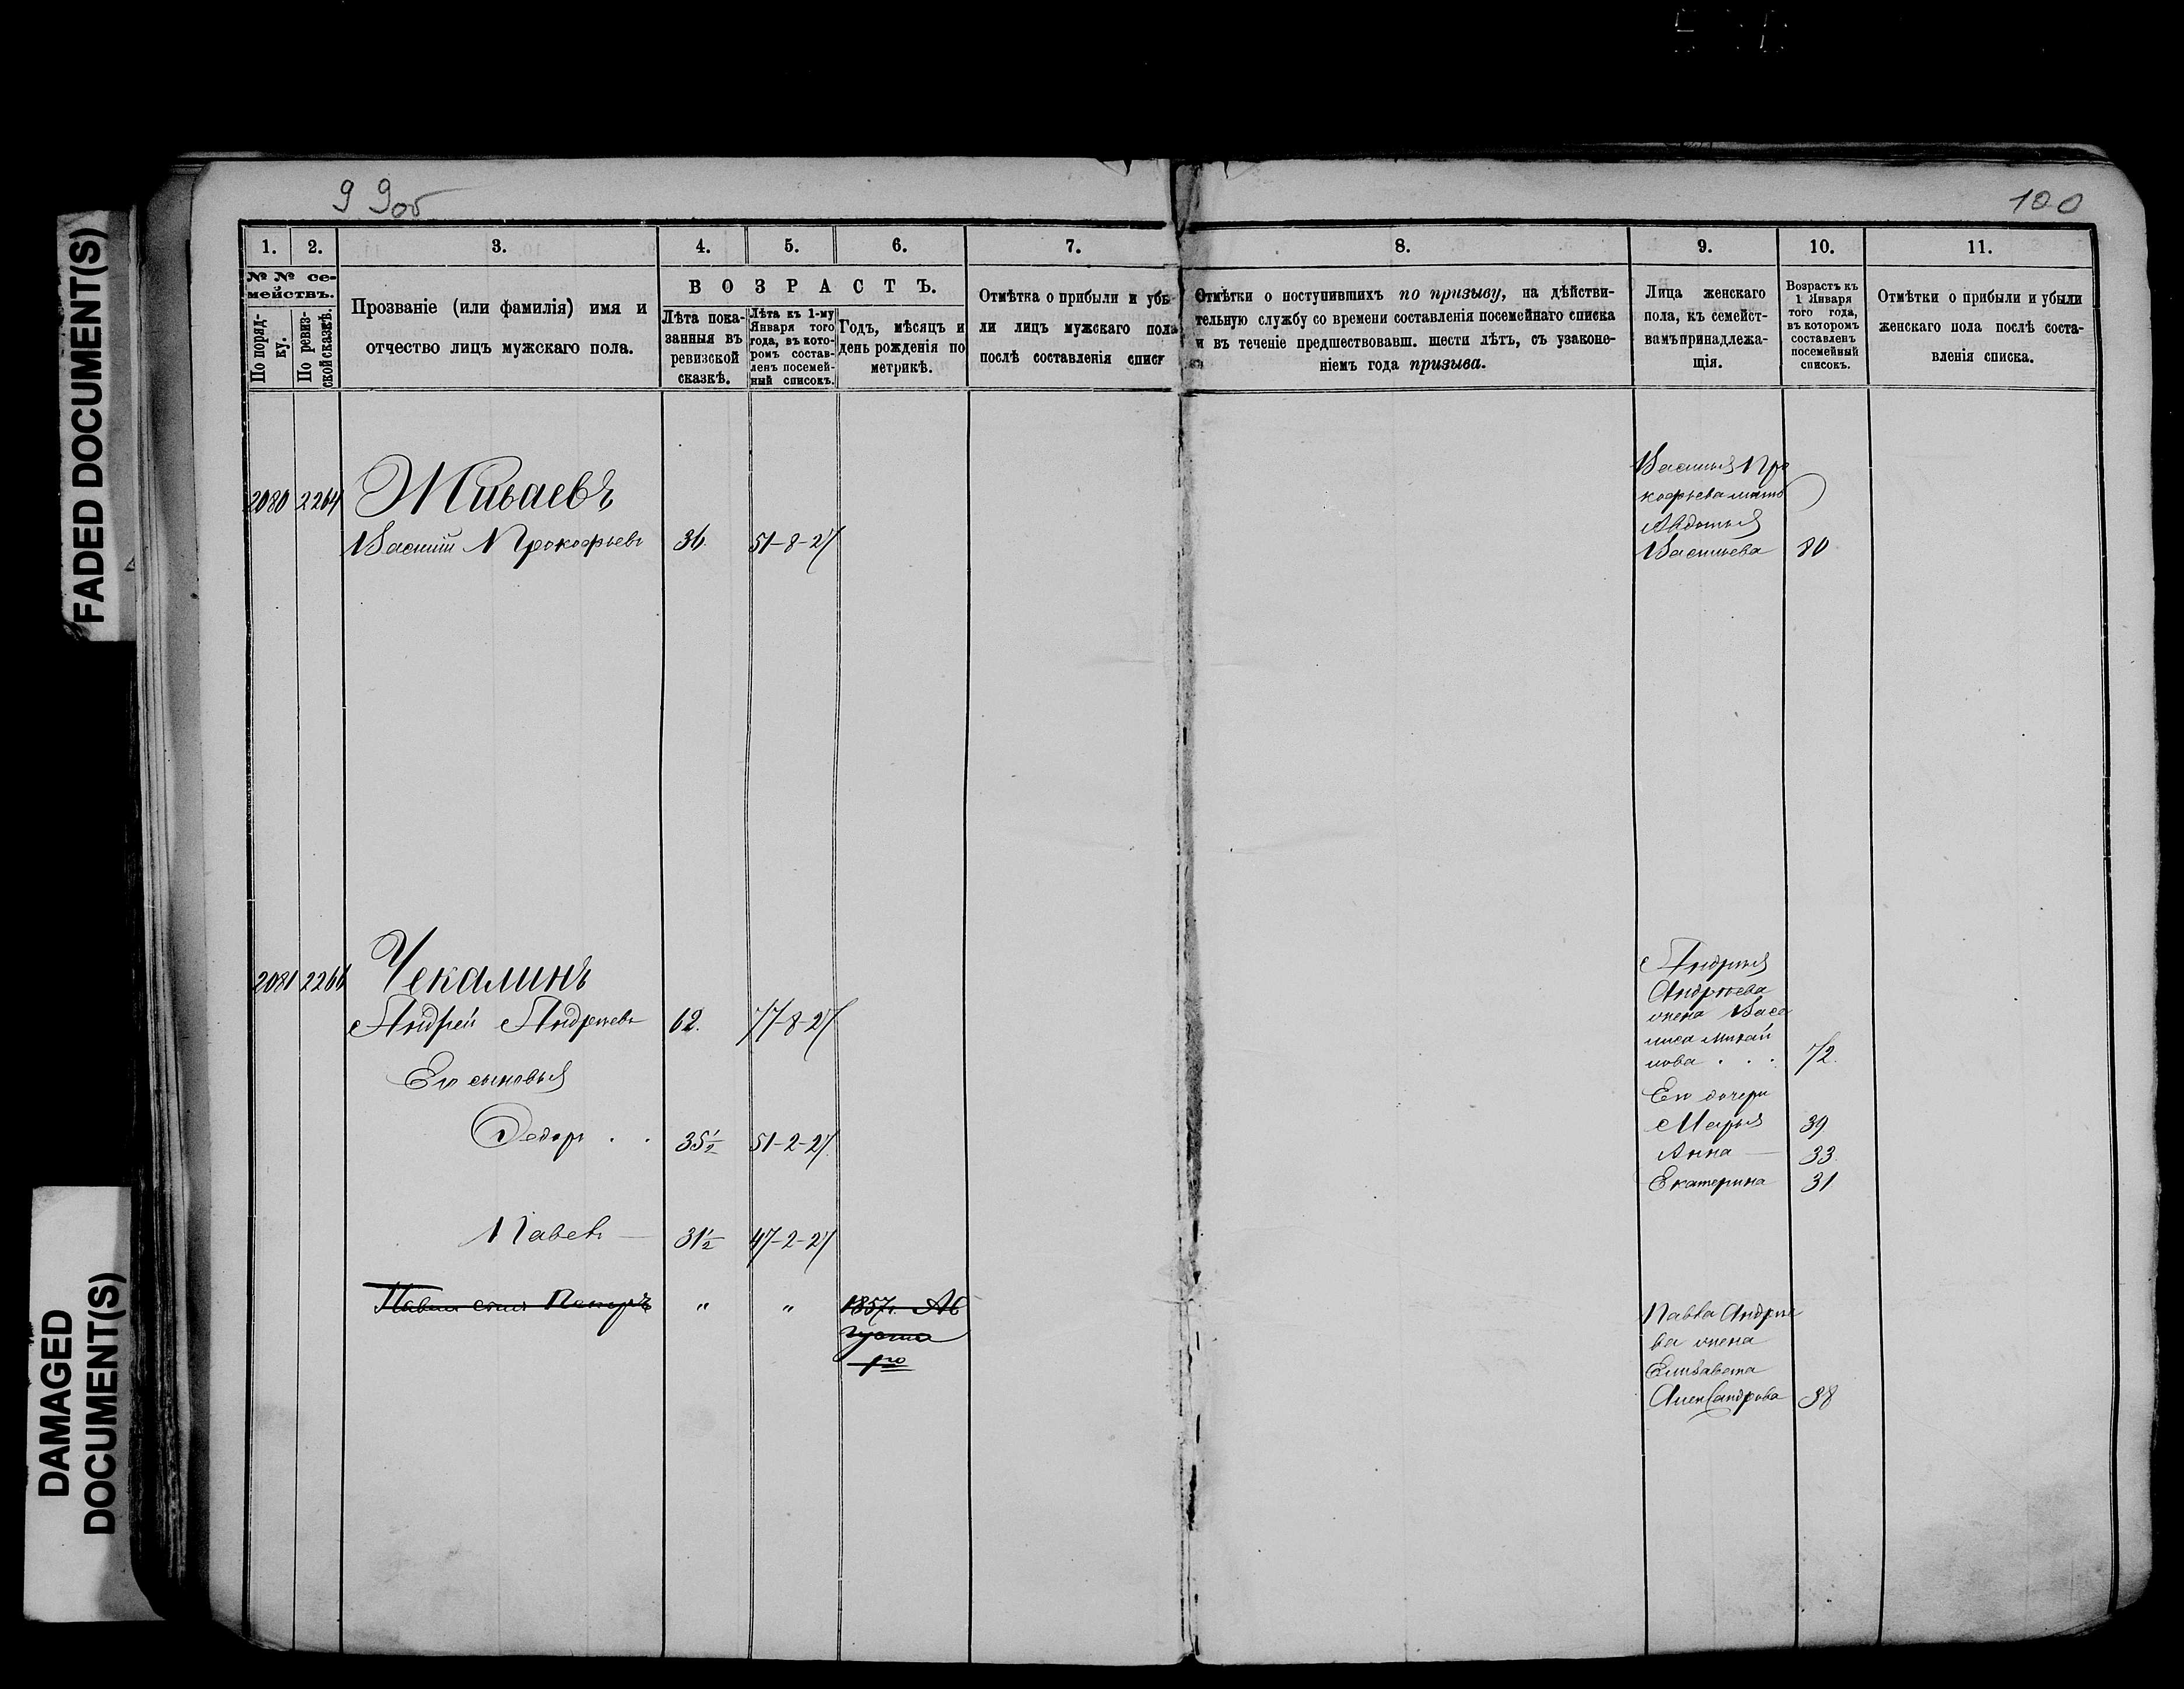 FADED DOCUMENT(S)
DAMAGED
DOCUMENT(S)
99об
100
1.
2.
3.
4.
5.
6.
7.
№ № се-
мействъ.
По поряд-
ку.
По ревиз-
ской сказкѣ.
Прозваніе (или фамилія) имя и
отчество лицъ мужскаго пола.
В О З Р А С Т Ъ.
Лѣта пока-
занныя въ
ревизской
сказкѣ.
Лѣта къ 1-му
Января того
года, въ кото-
ромъ состав-
ленъ посемей-
ный списокъ.
Годъ, мѣсяцъ и
день рожденія по
метрикѣ.
Отмѣтка о прибыли и убы-
ли лицъ мужскаго пола
послѣ составленія списк
8.
9.
10.
11.
Отмѣтки о поступившихъ по призыву, на дѣйстви-
тельную службу со времени составленія посемейнаго списка
и въ теченіе предшествовавш. шести лѣтъ, съ узаконе-
ніемъ года призыва.
Лица женскаго
пола, къ семейст-
вамъ принадлежа-
щія.
Возрастъ къ
1 Января
того года,
въ которомъ
составленъ
посемейный
списокъ.
Отмѣтки о прибыли и убыли
женскаго пола послѣ соста-
вленія списка.
2080 2264
Василій Прокофьевъ 36. 51-8-27
Василья Про
кофьева мать
Авдотья
Васильева 80
2081 2266 Чекалинъ
Андрей Андреевъ 62. 77-8-27
Его сыновья
Федоръ . . 35½ 51-2-27.
Павелъ — 31½ 47-2-27
Павла сынъ Петръ " " 1857г. Ав
густа
1го
Андрея
Андреева
жена Васи
лиса Михай
лова . . . 72.
Его дочери
Марья 39
Анна — 33.
Екатерина 31
Павла Андрее
ва жена
Елизавета
Александрова 38